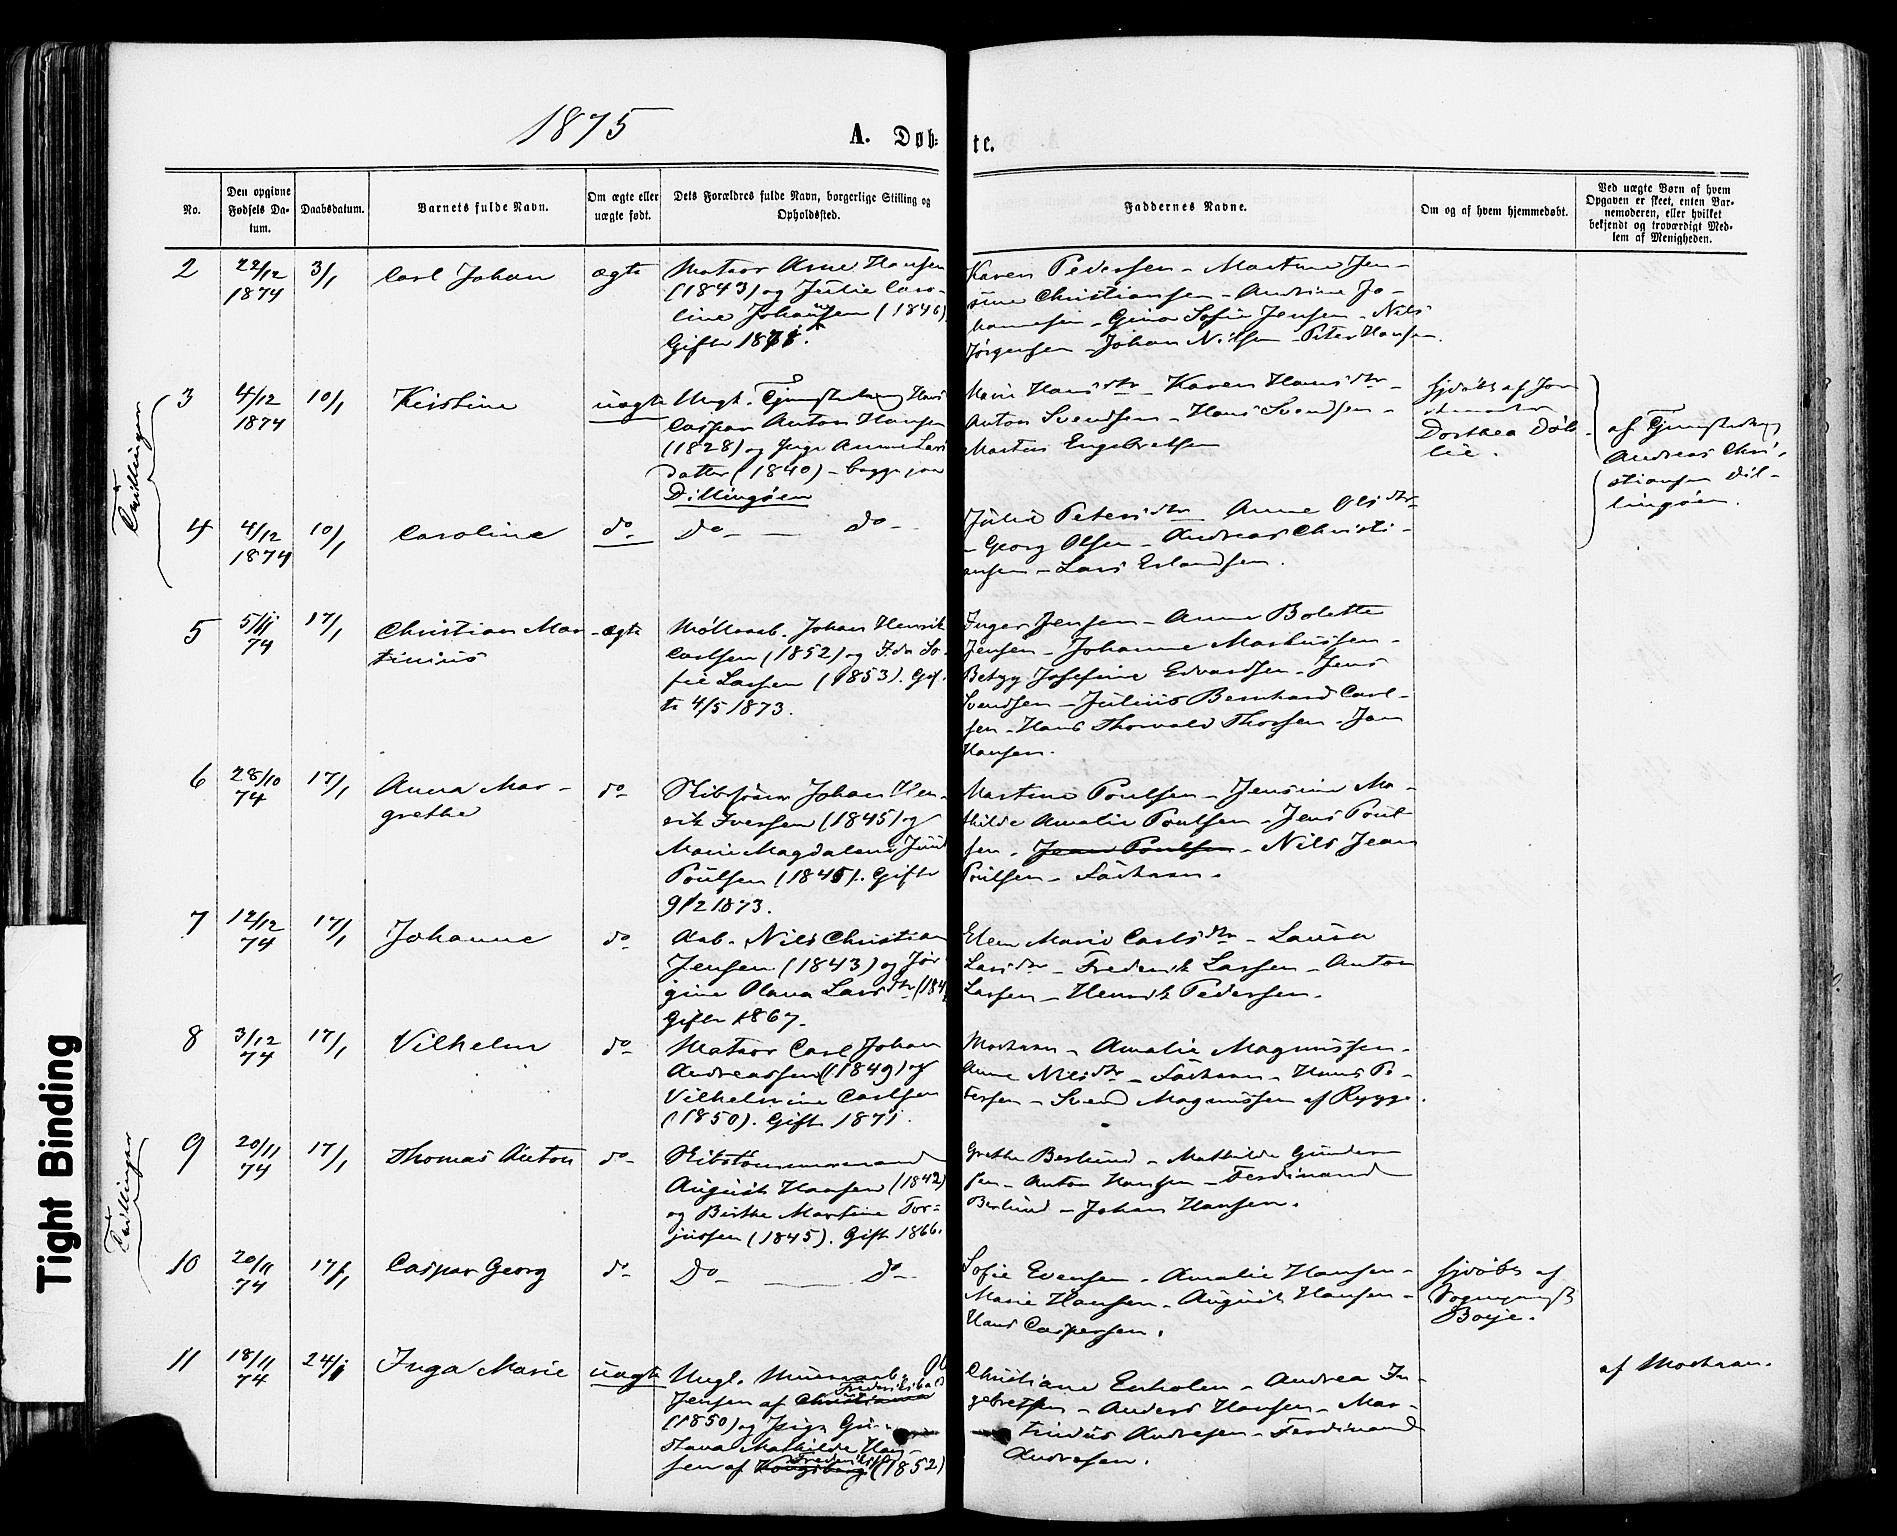 1875
A. Døb-
te.
No.
Den opgivne Fødsels Da-tum.
Daabsdatum.
Barnets fulde Navn.
Om ægte eller uægte født.
Dets Forældres fulde Navn, borgerlige Stilling og Opholdssted.
Faddernes Navne.
Om og af hvem hjemmedøbt.
Ved uægte Børn af hvem Opgaven er skeet, enten Bar-nemoderen, eller hvilket bekjendt og troværdigt Med-lem af Menigheden.
2 22/12 1874 3/1 Carl Johan ægte
Matros Arne Hansen
(1843) og Julie Caro-
line Johansen (1846)
Gifte 1871.
Karen Pedersen - Martine Jen-
sine Christiansen - Andrine Jo-
hannesen - Gina Sofie Jensen - Nils
Jørgensen - Johan Nilsen - Peter Hansen.
Tvillinger
3 4/12 1874 10/1 Kirstine uægte
Ungk. Hans
Caspar Anton Hansen
(1828) og Pige Anne Lars
datter (1840) - begge paa
Dillingøen
Marie Hansdtr - Karen Hansdtr -
Anton Svendsen - Hans Svendsen -
Martin Engebretsen
hjdøbt af Jor
demoder
Dorthea Døl-
lie.
af
Andreas Chri-
stiansen Dil-
lingøen.
4 4/12 1874 10/1 Caroline do
Do - — do -
Julie Petersdtr - Anne Olsdtr -
- Georg Olsen - Andreas Christi-
ansen - Lars Erlandsen.
5 5/11 74 17/1 Christian Mar- ægte
tinius
Møllearb. Johan Henrik
Carlsen (1852) og Ida So-
fie Larsen (1853). Gif-
te 4/5 1873.
Inger Jensen - Anne Bolette
Jensen - Johanne Markussen -
Betzy Josefine Edvardsen - Jens
Svendsen - Julius Bernhard Carl-
sen - Hans Thorvald Thorsen - Jan
Hansen.
6 28/10 74 17/1 Anna Mar- do
grethe
Skibsfører Johan Hen-
rik Iversen (1845) og
Marie Magdalene Juul
Poulsen (1845). Gifte
9/2 1873.
Martine Poulsen - Jensine Ma-
thilde Amalie Poulsen - Jens Poul-
sen - Jean Poulsen - Nils Jean
Poulsen - Faderen.
7 12/12 74 17/1 Johanne do
Arb. Nils Christian
Jensen (1843) og Jør
gine Olava Larsdtr (184
Gifte 1867.
Elen Marie Carlsdtr - Laura
Larsdtr - Frederik Larsen - Anton
Larsen - Henrik Pedersen.
8 3/12 74 17/1 Vilhelm do
Matros Carl Johan
Andreassen (1849) og
Vilhelmine Carlsen
(1850). Gifte 1871.
Moderen - Amalie Magnussen -
Anne Nilsdtr - Faderen - Hans Pe-
tersen - Svend Magnussen af Rygge.
Tvillinger
9 20/11 74 17/1 Thomas Anton do
Skibstømmermand
August Hansen (1842)
og Birthe Martine Tor-
jussen (1845). Gift 1866.
Grethe Berlund - Mathilde Gunder-
sen - Anton Hansen - Ferdinand
Berlund - Johan Hansen.
10 20/11 74 17/1 Caspar Georg do
Do - — Do -
Sofie Evensen - Amalie Hansen -
Marie Hansen - August Hansen -
Hans Caspersen.
hjdøbt af
Sognepræst
Boeje.
11 18/11 74 24/1 Inga Marie uægte
Ungk. Ol
Jensen af Christiania Frederikshald
(1850) og Pige Gu-
stava Mathilde Han-
sen af Kongsberg (1852)
Christiane Enholm - Andrea In-
gebretsen - Anders Hansen - Mar-
tinius Andresen - Ferdinand
Andresen.
af Moderen.
Tight Binding